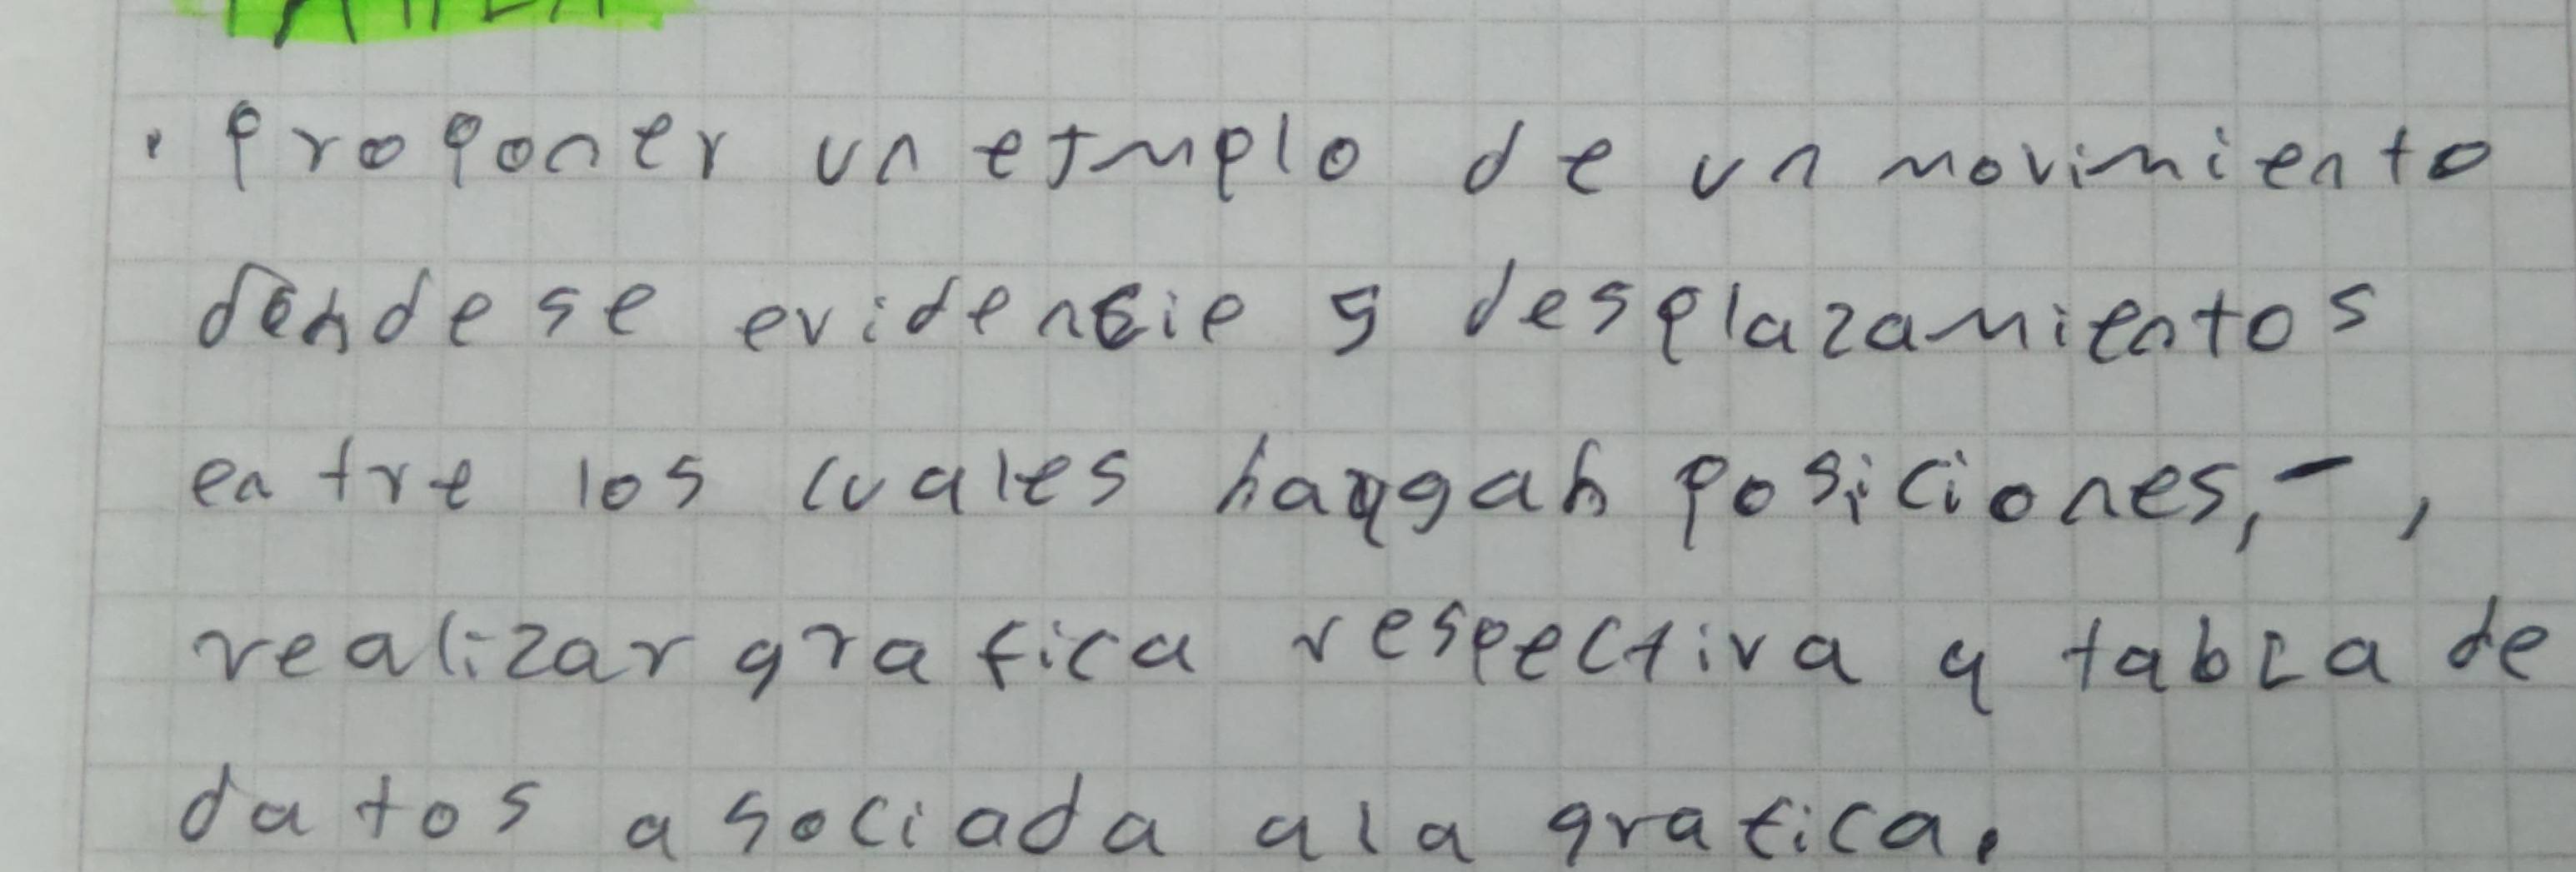 . Proponer un ejmplo de un movimiento
donde se evidencie 5 desplazamientos
entre los cuales haygan posiciones, -,
realizar grafica respectiva y tabla de
datos asociada ala grafica.